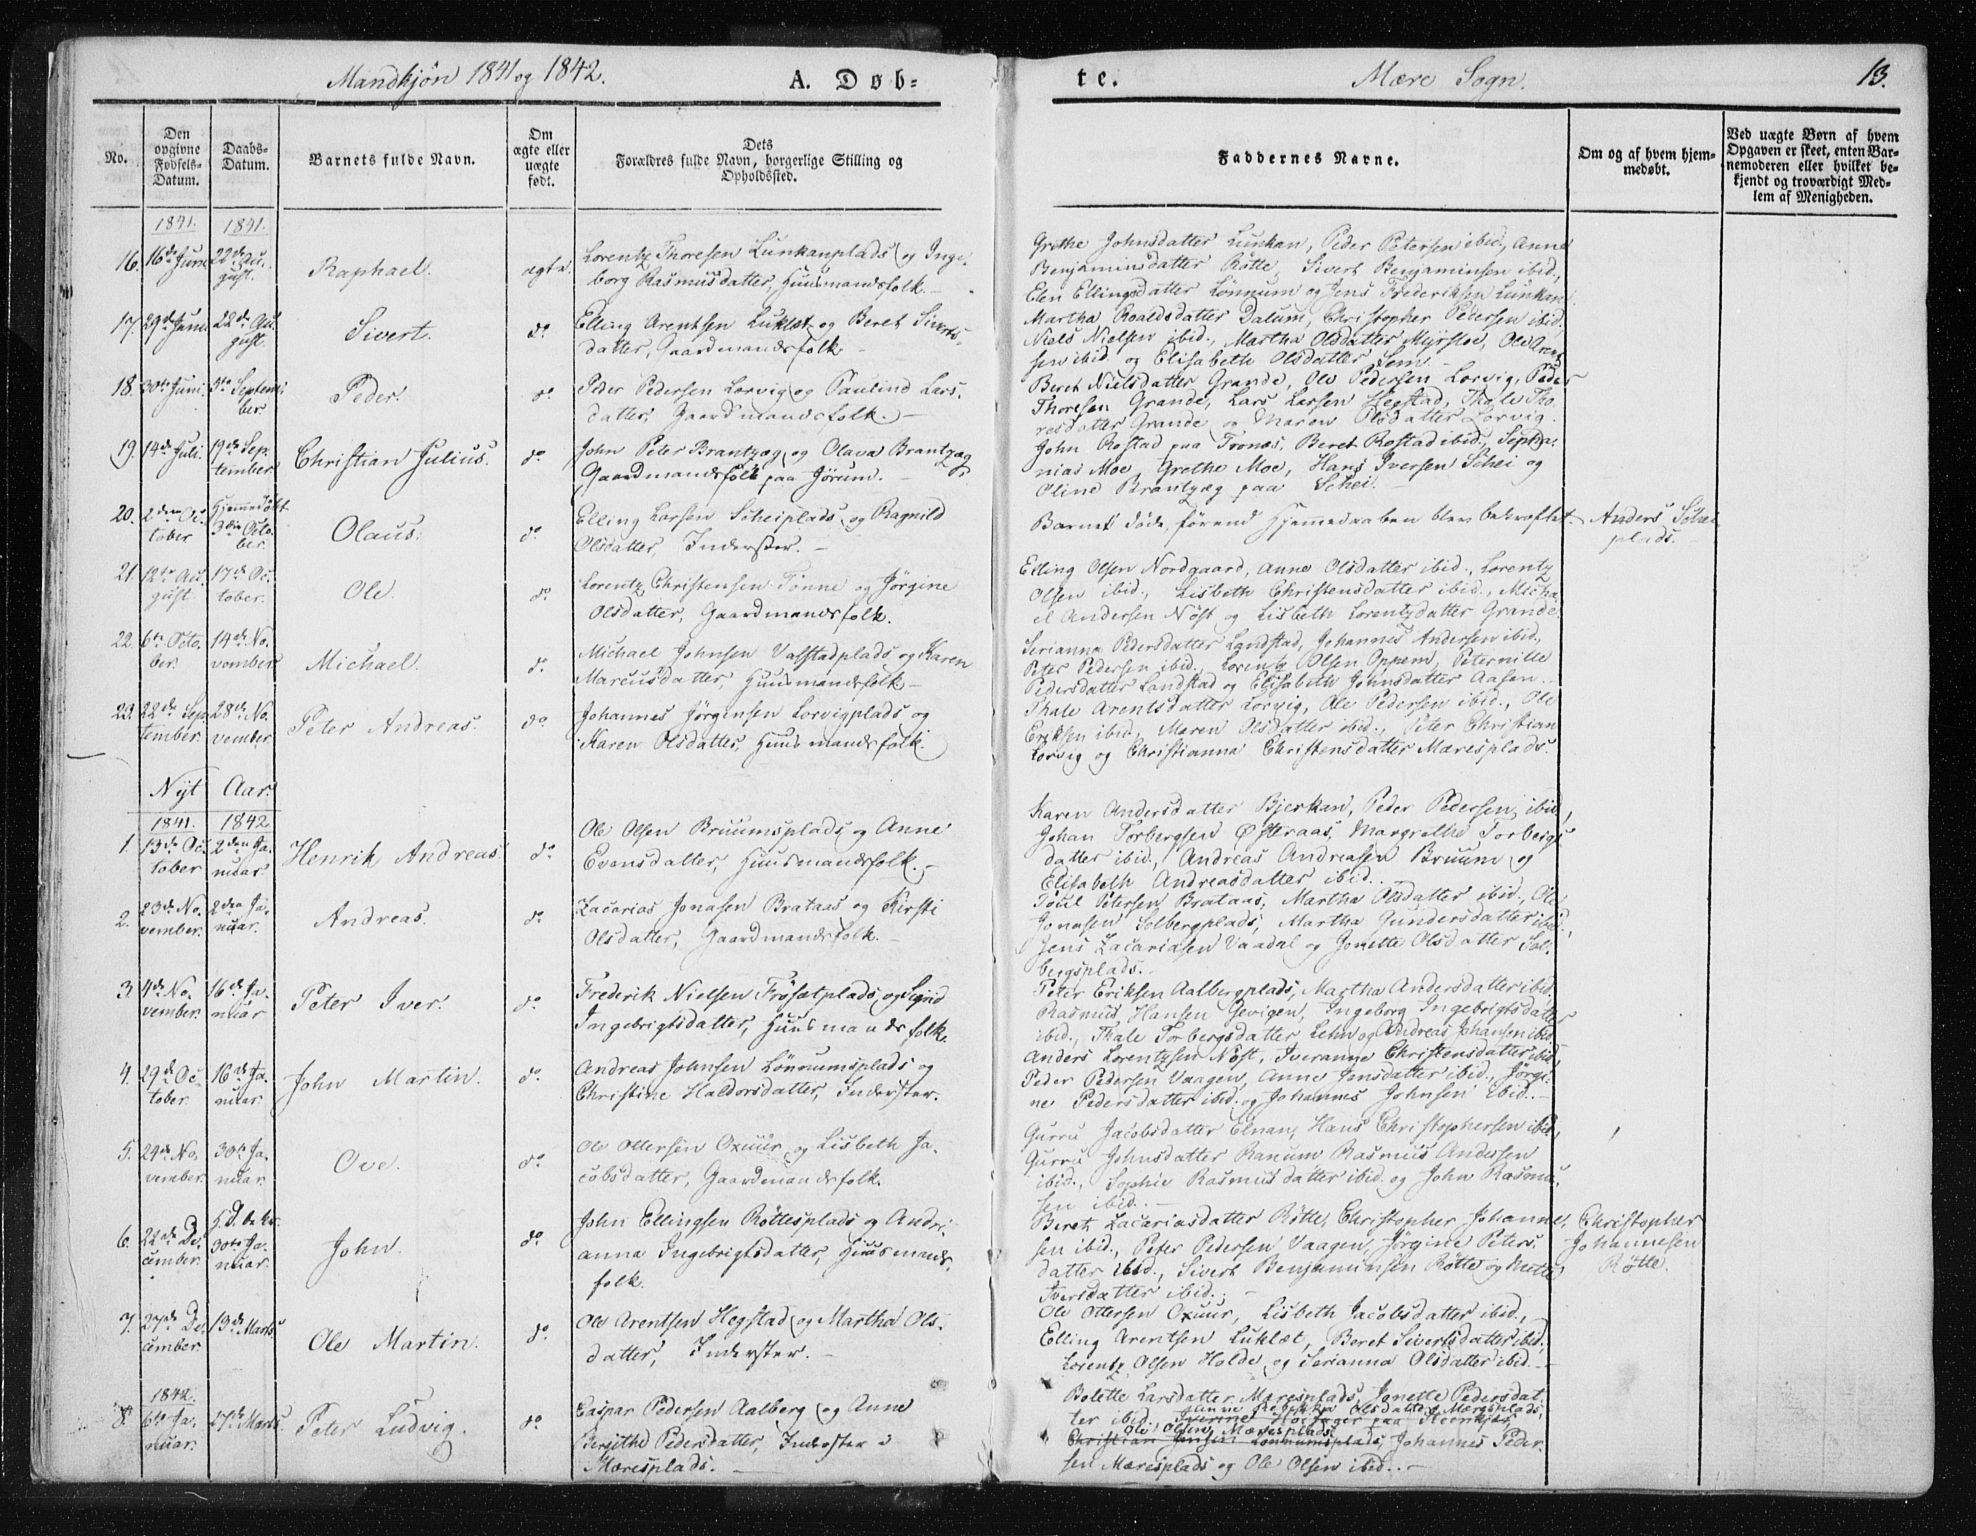 Mandkjøn 1841 og 1842.
A. Døb-
te.
Mære Sogn.
13.
No.
Den
opgivne
Fødsels-
Datum.
Daabs-
Datum.
Barnets fulde Navn.
Om
ægte eller
uægte
født.
Dets
Forældres fulde Navn, borgerlige Stilling og
Opholdssted.
Faddernes Navne.
Om og af hvem hjem-
medøbt.
Ved uægte Børn af hvem
Opgaven er skeet, enten Bar-
nemoderen eller hvilket be-
kjendt og troværdigt Med-
lem af Menigheden.
1841. 1841.
16. 16de Juni 22de Au-
gust.
Raphael.
ægte.
Lorentz Thoresen Lunkanplads og Inge-
borg Rasmusdatter, Huusmandsfolk. -
Grethe Johnsdatter Lunkan, Peder Petersen ibid., Anne
Benjaminsdatter Røtte, Sivert Benjaminsen ibid.,
Elen Ellingsdatter Lønnum og Jens Frederiksen Lunkan.
17. 29de Juni 22de Au-
gust.
Sivert.
do
Elling Arentsen Luklæt og Beret Siverts-
datter, Gaardmandsfolk -
Martha Roaldsdatter Dalum, Christopher Pedersen ibid.
Niels Nielsen ibid., Martha Olsdatter Myrstoe, Ole Arent
sen ibid og Elisabeth Olsdatter Sem -
18. 30te Juni. 5te Septem-
ber
Peder.
do
Peder Pedersen Lorvig og Paulind Lars-
datter, Gaardmandsfolk. -
Beret Nielsdatter Grande, Ole Pedersen Lorvig, Peder
Thoresen Grande, Lars Larsen Hegstad, Thale Tho-
resdatter Grande og Maren Olsdatter Lorvig.
19. 14de Juli. 19de Sep-
tember.
Christian Julius.
do
John Peter Brantzæg og Olava Brantzæg
Gaardmandsfolk paa Jørum. -
John Rostad paa Tronæs, Beret Rostad ibid., Sepha-
nias Moe, Grethe Moe, Hans Iversen Schei og
Oline Brantzæg paa Schei. -
20. 2den Oc-
tober
Hjemmedøbt
3die Octo-
ber.
Olaus.
do
Elling Larsen Scheiplads og Ragnild
Olsdatter, Inderster. -
Barnet døde, førend Hjemmedaaben blev bekræftet
Anders Schei-
plads. -
21. 12te Au-
gust
17de Oc-
tober.
Ole.
do
Lorentz Christensen Tønne og Jørgine
Olsdatter, Gaardmandsfolk.
Elling Olsen Nordgaard, Anne Olsdatter ibid., Lorentz
Olsen ibid., Lisbeth Christensdatter ibid., Micha-
el Andersen Nøst og Lisbeth Lorentzdatter Grande.
22. 6te Octo-
ber.
14de No-
vember.
Michael.
do
Michael Johnsen Valstadplads og Karen
Marcusdatter, Huusmandsfolk -
Serianna Pedersdatter Landstad, Johannes Andersen ibid.,
Peter Pedersen ibid., Lorentz Olsen Oppem, Peternille
Pedersdatter Landstad og Elisabeth Johnsdatter Aasen. -
23. 22de Sep-
tember.
28de No-
vember
Peter Andreas.
do
Johannes Jørgensen Lorvigplads og
Karen Olsdatter, Huusmandsfolk.
Thale Arentsdatter Lorvig, Ole Pedersen ibid., Ole
Eriksen ibid., Maren Olsdatter ibid., Peter Christian
Lorvig og Christianna Christensdatter Mæresplads.
Nyt Aar.
1841. 1842
1. 13de Oc-
tober
2den Ja-
nuar
Henrik Andreas
do
Ole Olsen Bruumsplads og Anne
Evensdatter, Huusmandsfolk. -
Karen Andersdatter Bjerkan, Peder Pedersen ibid,
Johan Torbergsen Østeraas, Margrethe Torbergs
datter ibid., Andreas Andreasen Bruum og
Elisabeth Andreasdatter ibid.
2. 23de No-
vember.
2den Ja-
nuar.
Andreas.
do
Zacarias Jonasen Brataas og Kirsti
Olsdatter, Gaardmandsfolk. -
Poul Petersen Brataas, Martha Olsdatter ibid., Ole
Jonasen Solbergplads, Martha Gundersdatter ibid.,
Jens Zacariasen Vaadal og Jonette Olsdatter Sol-
bergsplads.
3 4de No-
vember.
16de Ja-
nuar
Peter Iver.
do
Frederik Nielsen Frøsætplads og Sigrid
Ingebrigtsdatter, Huusmandsfolk.
Peter Eriksen Aalbergplads, Martha Andersdatter ibid.
Rasmus Hansen Gevigen, Ingeborg Ingebrigtsdatter
ibid., Thale Torbergsdatter Lehn og Andreas Johansen ibid.
4. 29de Oc-
tober.
16de Ja-
nuar.
John Martin.
do
Andreas Johnsen Lønnumsplads og
Christine Haldorsdatter, Inderster.
Anders Lorentzsen Nøst, Iveranne Christensdatter ibid
Peder Pedersen Vaagen, Anne Jensdatter ibid., Jørgi-
ne Pedersdatter ibid. og Johannes Johnsen ibid. -
5. 29de No-
vember.
30te Ja-
nuar.
Ove.
do
Ole Ottersen Oxuur og Lisbeth Ja-
cobsdatter, Gaardmandsfolk.
Gurru Jacobsdatter Elnan, Hans Christophersen ibid,
Gurru Johnsdatter Ranum Rasmus Andersen
ibid., Sophie Rasmusdatter ibid. og John Rasmu-
sen ibid. -
6. 22de De-
cember.
30te Ja-
nuar.
John.
do
John Ellingsen Røttesplads og Andri-
anna Ingebrigtsdatter, Huusmands-
folk.
Beret Zacariasdatter Røtte, Christopher Johanne-
sen ibid., Peter Pedersen Vaagen, Jørgine Peters-
datter ibid., Sivert Benjaminsen Røtte og Mette
Iversdatter ibid. -
Christopher
Johannesen
Røtte.
7. 27de De-
cember.
13de Marts
Ole Martin.
do
Ole Arentsen Hegstad og Martha Ols-
datter, Inderster. -
Ole Ottersen Oxuur, Lisbeth Jacobsdatter ibid.,
Elling Arentsen Luklæt, Beret Sivertsdatter ibid.,
Lorentz Olsen Holde og Serianna Olsdatter ibid. -
1842.
8. 6te Ja-
nuar.
27de Marts.
Peter Ludvig.
do
Caspar Pedersen Aalberg og Anne
Bergithe Pedersdatter, Inderster i
Mæresplads. -
Bolette Larsdatter Mæresplads, Jonette Pedersdat-
Olsdatter Mæresplads,
ter ibid., Iverine Hojager paa Steenkjær,
Ole Olsen Mæresplads,
Christian Jensen Lønnumsplads, Johannes Peder-
sen Mæresplads og Ole Olsen ibid. -